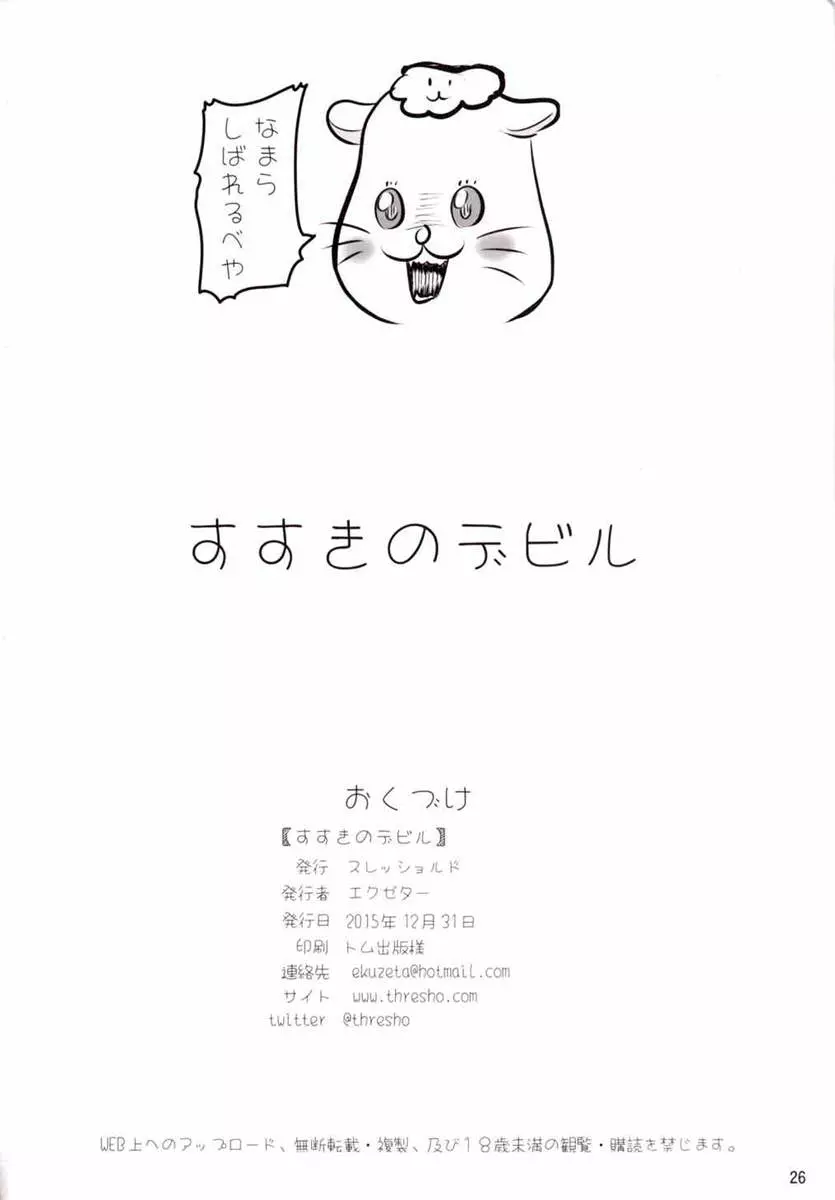 なまら
しばれるべや
すすきのデビル
おくづけ
〖すすきのデビル〗
発行 スレッショルド
発行者 エクゼター
発行日 2015年12月31日
印刷 トム出版様
連絡先 ekuzeta@hotmail.com
サイト www.thresho.com
twitter @thresho
WEB上へのアップロード、無断転載・複製、及び18歳未満の観覧・購読を禁じます。
26